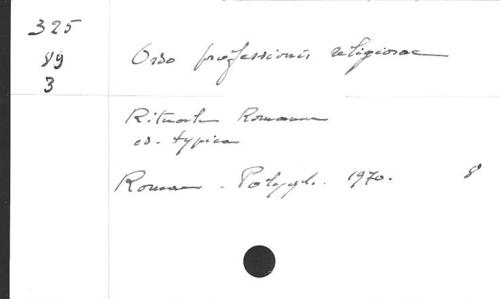 325
89
3
Ordo professionis religiosae
Rituale Romanum
ed. typica
Romae - Polygl. 1970. 8